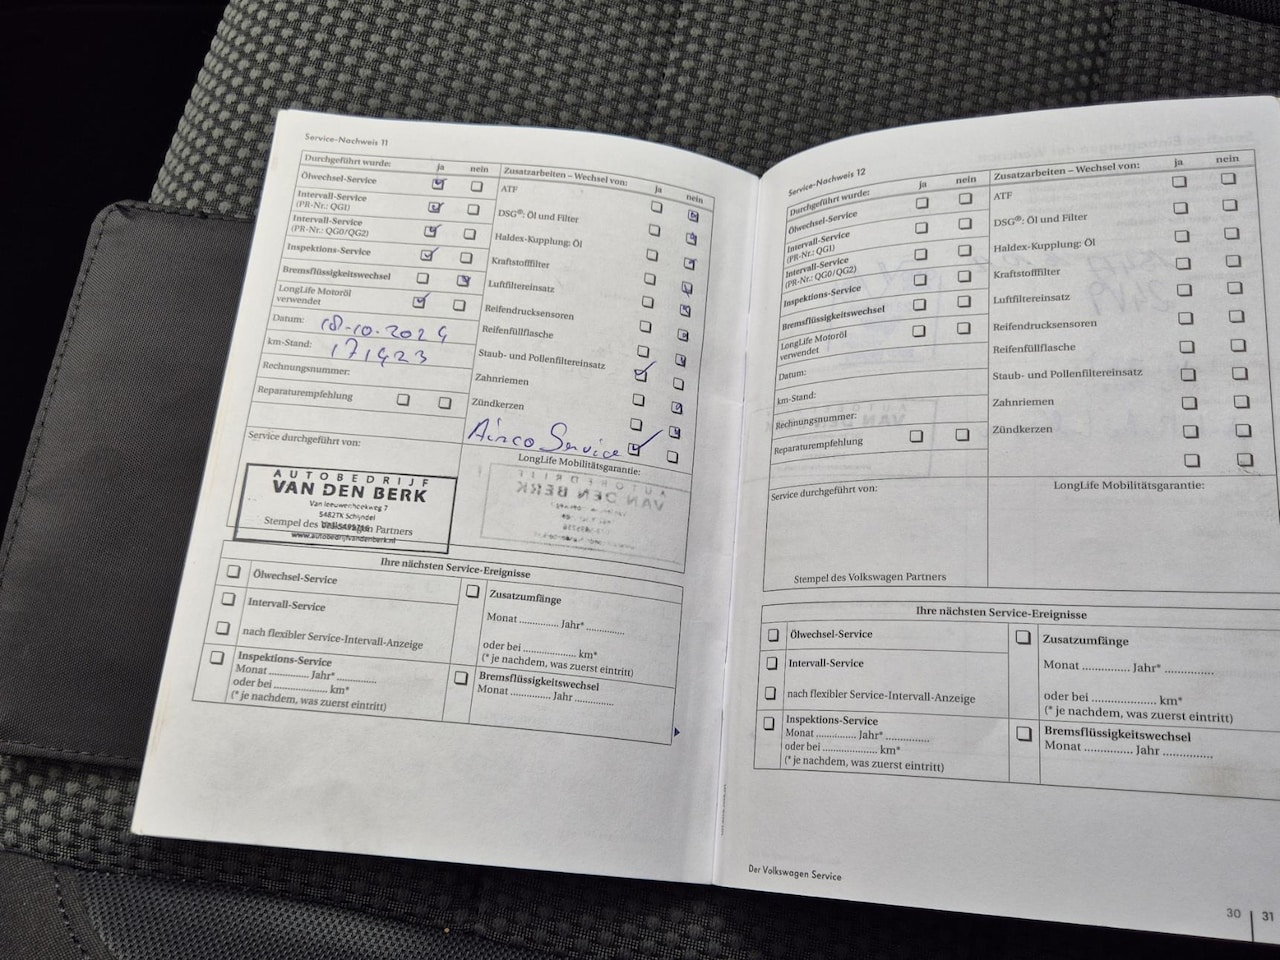 Service-Nachweis 11
Durchgeführt wurde: ja nein
Ölwechsel-Service
Intervall-Service
(PR-Nr.: QG1)
Intervall-Service
(PR-Nr.: QG0/QG2)
Inspektions-Service
Bremsflüssigkeitswechsel
LongLife Motoröl
verwendet
Datum: 18-10-2024
km-Stand: 171423
Rechnungsnummer:
Reparaturempfehlung
Zusatzarbeiten – Wechsel von: ja nein
ATF
DSG®: Öl und Filter
Haldex-Kupplung: Öl
Kraftstofffilter
Luftfiltereinsatz
Reifendrucksensoren
Reifenfüllflasche
Staub- und Pollenfiltereinsatz
Zahnriemen
Zündkerzen
Airco Service
Service durchgeführt von:
AUTOBEDRIJF
VAN DEN BERK
Van Leeuwenhoekweg 7
5482TK Schijndel
Stempel des Volkswagen Partners
www.autobedrijfvandenberk.nl
LongLife Mobilitätsgarantie:
Ihre nächsten Service-Ereignisse
Ölwechsel-Service
Intervall-Service
nach flexibler Service-Intervall-Anzeige
Inspektions-Service
Monat .............. Jahr* ..............
oder bei ..................... km*
(* je nachdem, was zuerst eintritt)
Zusatzumfänge
Monat .............. Jahr* ..............
oder bei ..................... km*
(* je nachdem, was zuerst eintritt)
Bremsflüssigkeitswechsel
Monat .............. Jahr ..............
Service-Nachweis 12
Durchgeführt wurde: ja nein
Ölwechsel-Service
Intervall-Service
(PR-Nr.: QG1)
Intervall-Service
(PR-Nr.: QG0/QG2)
Inspektions-Service
Bremsflüssigkeitswechsel
LongLife Motoröl
verwendet
Datum:
km-Stand:
Rechnungsnummer:
Reparaturempfehlung
Zusatzarbeiten – Wechsel von: ja nein
ATF
DSG®: Öl und Filter
Haldex-Kupplung: Öl
Kraftstofffilter
Luftfiltereinsatz
Reifendrucksensoren
Reifenfüllflasche
Staub- und Pollenfiltereinsatz
Zahnriemen
Zündkerzen
Service durchgeführt von:
Stempel des Volkswagen Partners
LongLife Mobilitätsgarantie:
Ihre nächsten Service-Ereignisse
Ölwechsel-Service
Intervall-Service
nach flexibler Service-Intervall-Anzeige
Inspektions-Service
Monat .............. Jahr* ..............
oder bei ..................... km*
(* je nachdem, was zuerst eintritt)
Zusatzumfänge
Monat .............. Jahr* ..............
oder bei ..................... km*
(* je nachdem, was zuerst eintritt)
Bremsflüssigkeitswechsel
Monat .............. Jahr ..............
Der Volkswagen Service
30 31